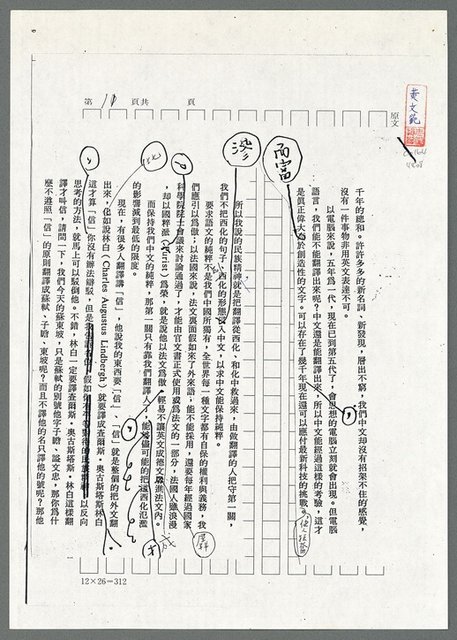 第11頁共 頁
原文
黃文範
千年的總和。許許多多的新名詞、新發現，層出不窮，我們中文却沒有招架不住的感覺，
沒有一件事物非用英文表達不可。
以電腦來說，五年爲一代，現在已到第五代了，會思想的電腦立刻就會出現。但電腦
語言，我們能不能翻譯出來呢？中文還是能翻譯出來，所以中文能經過這樣的考驗，這才
是眞正偉大
而富
於創造性的文字。可以存在了幾千年現在還可以應付最新科技的挑戰。
滲
所以我說的民族精神就是把翻譯從西化、和化中救過來，由做翻譯的人把守第一關，
我們不把西化的句子、西化的形態
入中文，以求中文能保持純粹。
要求語文的純粹不是我們中國所獨有，全世界每一種文字都有自保的權利與義務，我
們應引以爲傲；以法國來說，法文裏面假如來了外來語，能不能採用，還要每年經過國家
科學院院士會議來討論通過了，才能由官文書正式使用
爲法文的一部分，法國人雖浪漫
，却以國粹派 (Purist) 爲榮，就是說他以法文爲傲，輕易不讓英文或德文
進法文內。
而保持我們中文的純粹，那第一關只有靠我們翻譯人了，能
可能的把這西化氾濫
的影響減到最低的限度。
現在，有很多人翻譯講「信」，他說我的東西要「信」、「信」就是緊緊的把外文翻
出來，
如說林白 (Charles Augustus Lindbergh) 就要譯成查爾斯・奧古斯塔斯林白
這才算「信」
你沒有辦法辯駁，但是
假如
以反向
思考的方法，就馬上可以駁倒他。不錯，林白一定要譯查爾斯・奧古斯塔斯・林白這樣翻
譯才叫信，請問一下，我們今天的蘇東坡，只是蘇軾的別號他字子瞻、謚文忠，那你爲什
麼不遵照「信」的原則翻譯成蘇軾、子瞻、東坡呢？而且不譯他的名只譯他的號呢？那他
12×26=312